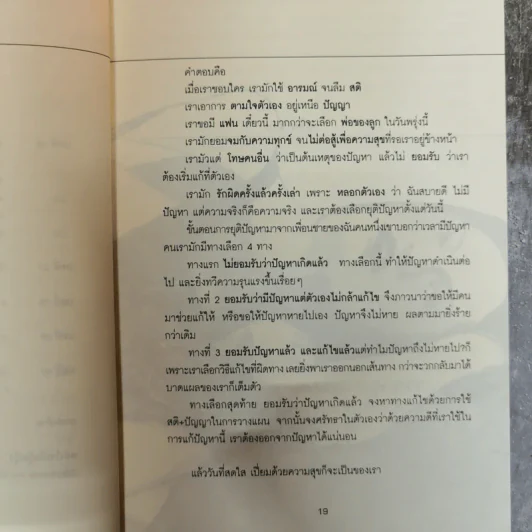 คำตอบคือ
เมื่อเราชอบใคร เรามักใช้ อารมณ์ จนลืม สติ
เราเอาการ ตามใจตัวเอง อยู่เหนือ ปัญญา
เราขอมี แฟน เดี๋ยวนี้ มากกว่าจะเลือก พ่อของลูก ในวันพรุ่งนี้
เรามักยอมจมกับความทุกข์ จนไม่ต่อสู้เพื่อความสุขที่รอเราอยู่ข้างหน้า
เรามัวแต่ โทษคนอื่น ว่าเป็นต้นเหตุของปัญหา แล้วไม่ ยอมรับ ว่าเรา
ต้องเริ่มแก้ที่ตัวเอง
เรามัก รักผิดครั้งแล้วครั้งเล่า เพราะ หลอกตัวเอง ว่า ฉันสบายดี ไม่มี
ปัญหา แต่ความจริงก็คือความจริง และเราต้องเลือกยุติปัญหาตั้งแต่วันนี้
ขั้นตอนการยุติปัญหามาจากเพื่อนชายของฉันคนหนึ่งเขาบอกว่าเวลามีปัญหา
คนเรามักมีทางเลือก 4 ทาง
ทางแรก ไม่ยอมรับว่าปัญหาเกิดแล้ว ทางเลือกนี้ ทำให้ปัญหาดำเนินต่อ
ไป และยิ่งทวีความรุนแรงขึ้นเรื่อยๆ
ทางที่ 2 ยอมรับว่ามีปัญหาแต่ตัวเองไม่กล้าแก้ไข จึงภาวนาว่าขอให้มีคน
มาช่วยแก้ให้ หรือขอให้ปัญหาหายไปเอง ปัญหาจึงไม่หาย ผลตามมายิ่งร้าย
กว่าเดิม
ทางที่ 3 ยอมรับปัญหาแล้ว และแก้ไขแล้วแต่ทำไมปัญหาถึงไม่หายไป?ก็
เพราะเราเลือกวิธีแก้ไขที่ผิดทาง เลยยิ่งพาเราออกนอกเส้นทาง กว่าจะวกกลับมาได้
บาดแผลของเราก็เต็มตัว
ทางเลือกสุดท้าย ยอมรับว่าปัญหาเกิดแล้ว จงหาทางแก้ไขด้วยการใช้
สติ+ปัญญาในการวางแผน จากนั้นจงศรัทธาในตัวเองว่าด้วยความดีที่เราใช้ใน
การแก้ปัญหานี้ เราต้องออกจากปัญหาได้แน่นอน
แล้ววันที่สดใส เปี่ยมด้วยความสุขก็จะเป็นของเรา
19